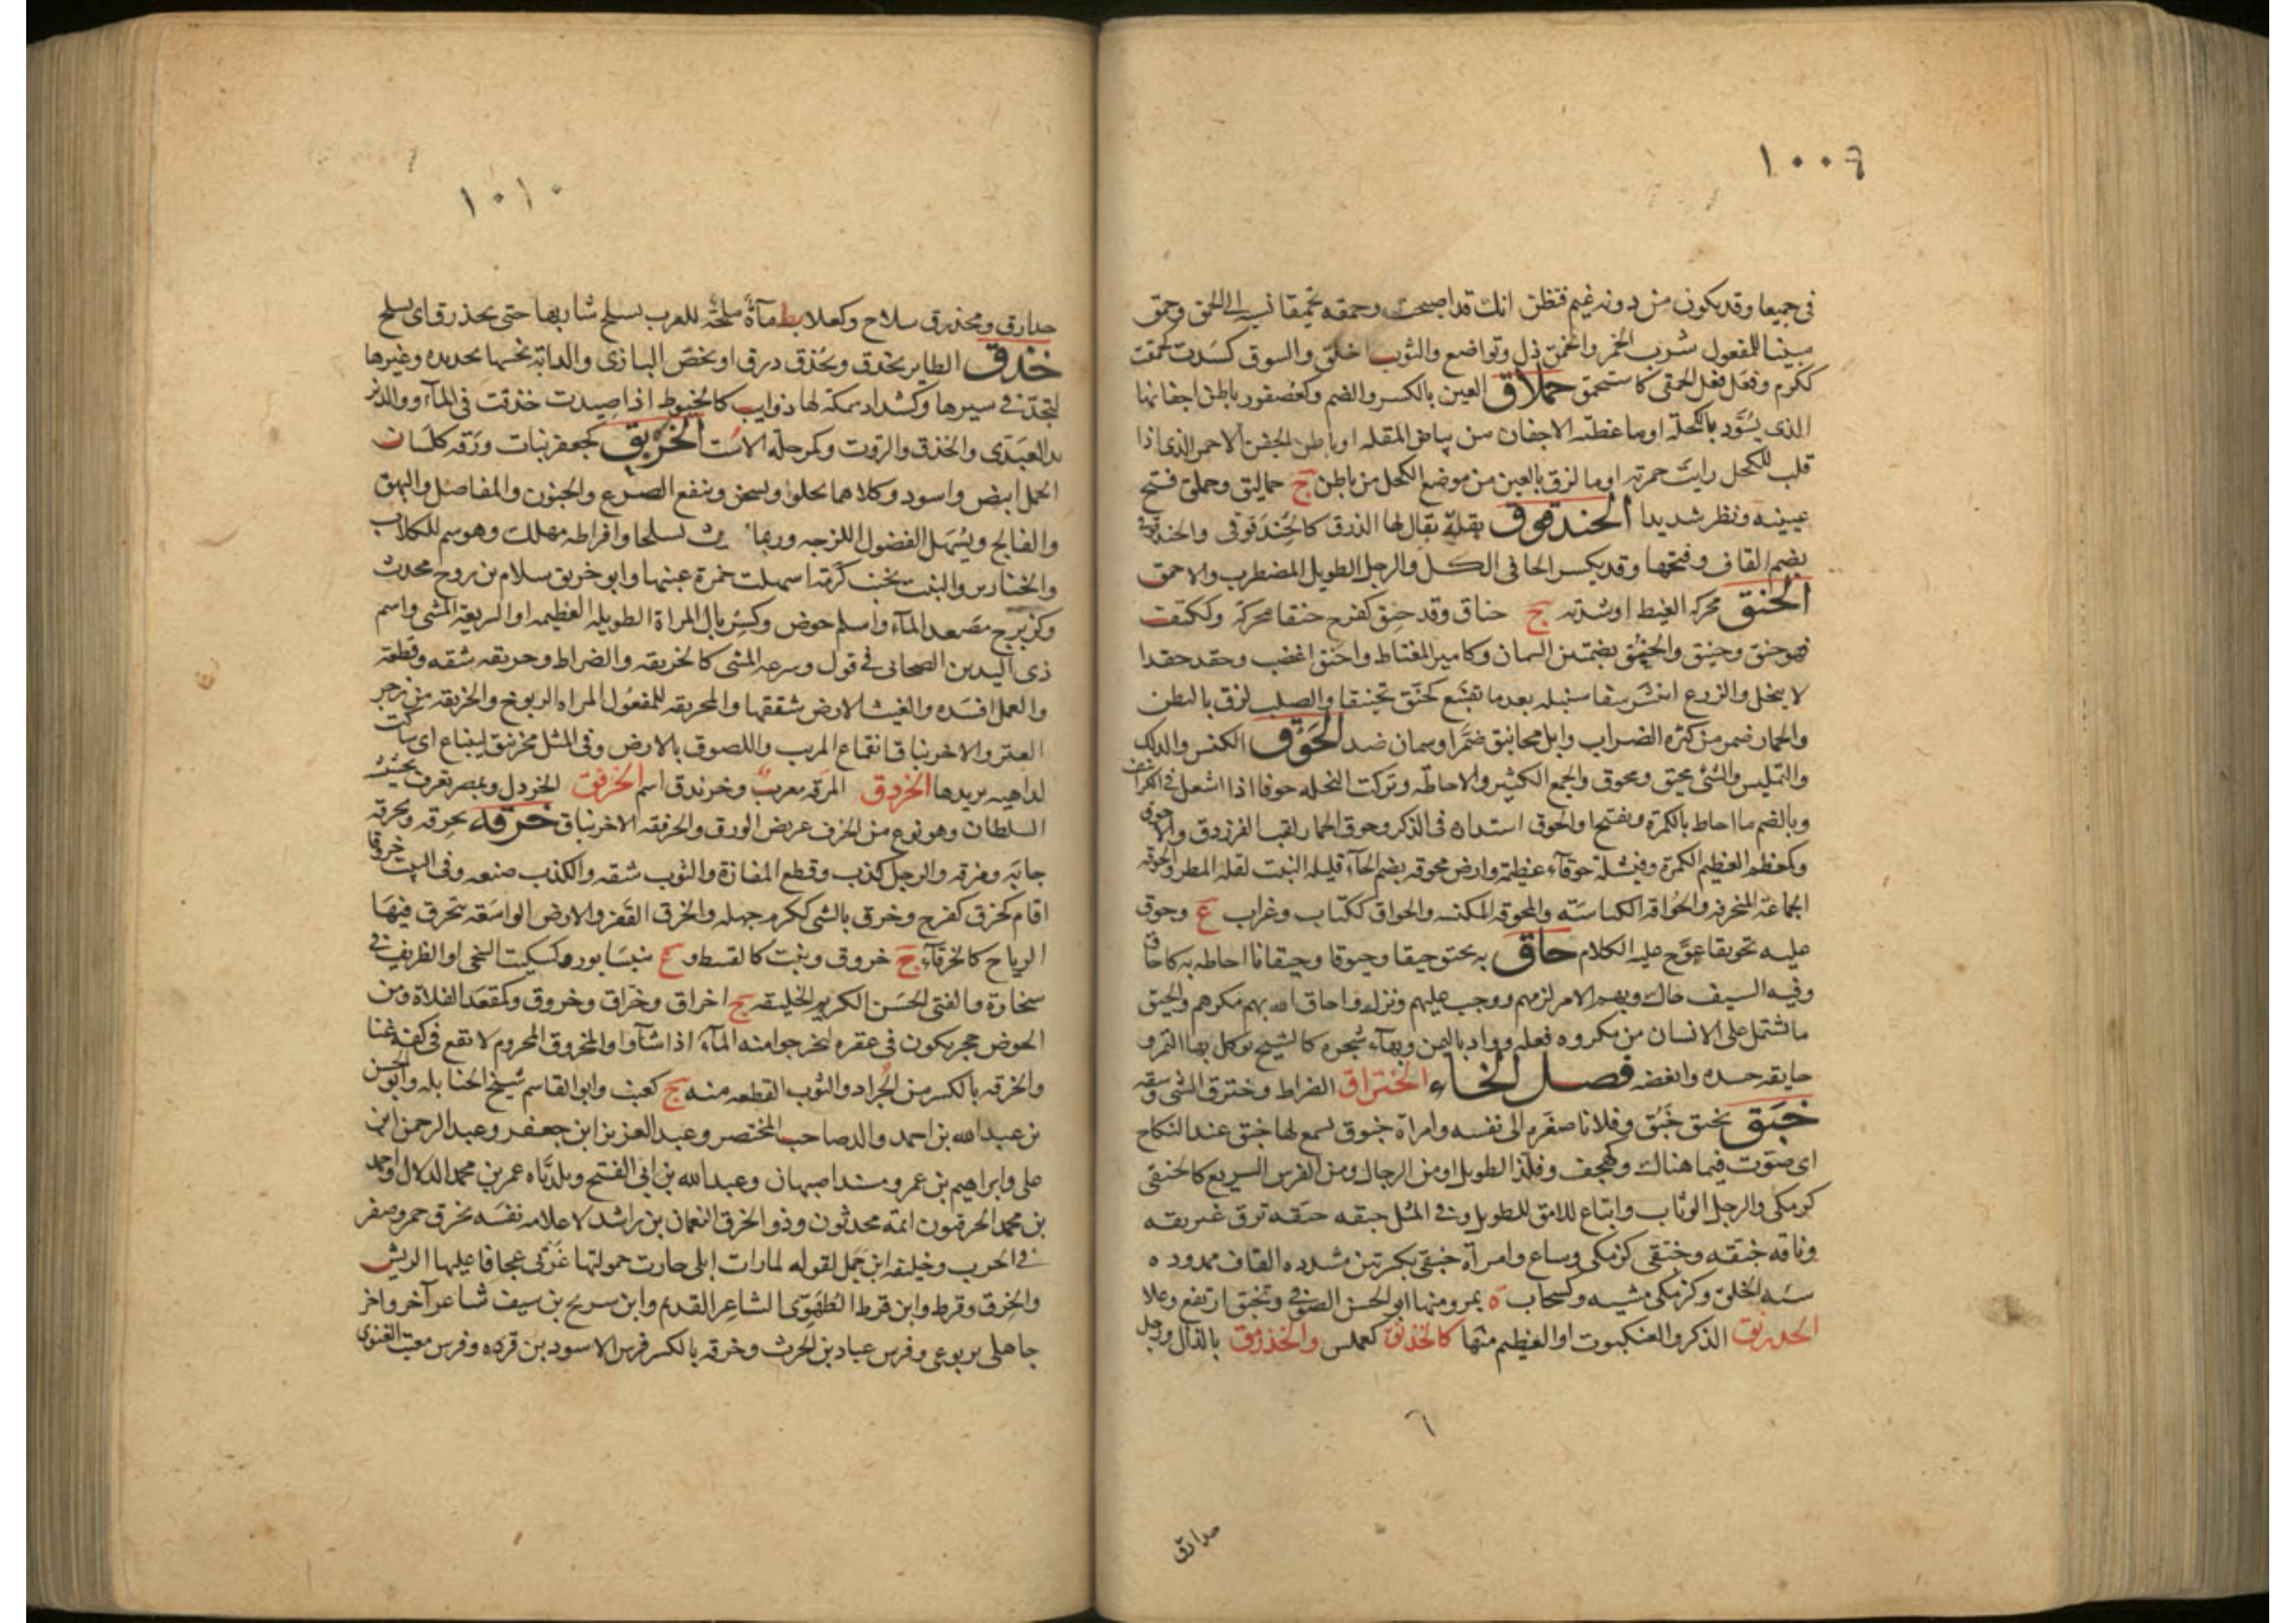 ١٠٠٩
فى جميعا وقد يكون من دونه غيم فتظن انك قد اصبحت وحمقه تحميقا نسبه الى الحمق وحمق
مبنيا للمفعول شرب الخمر وانحمق ذل وتواضع والثوب اخلق والسوق كسدت كحمقت
ككرم وفعل فعل الحمقى كاستحمق حملاق العين بالكسر والضم وكعصفور باطن اجفانها
الذى يسود بالكحلة او ما غطته الاجفان من بياض المقله او باطن الجفن الاحمر الذى اذا
قلب للكحل رايت حمرته او ما لزق بالعين من موضع الكحل من باطن ج حماليق وحملق فتح
عينيه ونظر شديدا الحندقوق بقلة يقال لها الذرق كالحندقوقى والحندقوقى
بضم القاف وفتحها وقد يكسر الحا فى الكل والرجل الطويل المضطرب والاحمق
الحنق محركه الغيظ او شدته ج حناق وقد حنق كفرح حنقا محركة وككتف
فهو حنق وحنيق والحنق بضمتين السمان وكامير المغتاظ واحنق اغضب وحقد حقدا
لا ينحل والزرع انتشر سفا سنبله بعد ما تقنبع كحنق تحنيقا والصلب لزق بالبطن
والحمار ضمر من كثرة الضراب وابل محانيق ضمر او سمان ضد الحوق الكنس والدلك
والتمليس والشئ محيق ومحوق والجمع الكثير والاحاطة وتركت النخلة حوقا اذا اشعل فى الكرانيف
وبالضم ما احاط بالكمرة ويفتح او الحوق استدارة فى الذكر وحوق الحمار لقب الفرزدق والاحوق
وكمعظم العظيم الكمرة وفيشلة حوقآء عظيمة وارض محوقه بضم الحآء قليله النبت لقله المطر والحوقه
الجماعة المنحرفه والحواقه الكناسة والمحوقه المكنسه والحواق ككتاب وغراب ع وحوق
عليه تحويقا عوج عليه الكلام حاق به يحيق حيقا وحيوقا وحيقانا احاط به كاحاق
وفيه السيف حاك وبهم الامر لزمهم ووجب عليهم ونزل واحاق الله بهم مكرهم والحيق
ما يشتمل على الانسان من مكروه فعله وواد باليمن وبهآء شجره كالشيح يوكل بها التمر و
حايقه حسده وابغضه فصل الخاء الختراق الضراط وخترق الشئ وسقه
خبق يخبق خبق وفلانا صغره الى نفسه وامراة خبوق يسمع لها خبق عند النكاح
اى صوت فيما هناك وكهجف وفلز الطويل او من الرجال ومن الفرس السريع كالخبقى
كزمكى والرجل الوثاب واتباع للامق للطويل وفى المثل خبقه حبقه ترق عين بقه
وناقه خبقه وخبقى كزمكى وساع وامراة خبقى بكسرتين مشدده القاف ممدوده
سيئة الخلق وكزمكى مشيه وكسحاب ة بمرو منها ابو الحسن الصوفى وتخبق ارتفع وعلا
الخدرنق الذكر والعنكبوت او العظيم منها كالخدنق كعملس والخذرنق بالذال ورجل
٦
خدارق
١٠١٠
خدارق ومخذرق سلاح وكعلابط مآءة ملحة للعرب يسلح شاربها حتى يخذرق اى يسلح
خذق الطاير يخذق ويخذق درق او يخص البازى والدابة نخسها بحديده وغيرها
لتجد فى سيرها وكشداد سمكة لها ذوايب كالخيوط اذا صيدت خذقت فى المآء ووالد يز
يد العبدى والخذق والروث وكمرحلة الاست الخربق كجعفر نبات ورقه كلسان
الحمل ابيض واسود وكلاهما يحلوا ويسخن وينفع الصرع والجنون والمفاصل والبهق
والفالج ويسهل الفضول اللزجه وربما تشنجا وافراطه مهلك وهو سم للكلاب
والخنازير والنبت بجنب كرمة اسهلت خمرة عنبها وابو خربق سلام بن روح محدث
وكزبرج مصعد المآء واسم حوض وكسربال المراة الطويله العظيمه او السريعة المشى واسم
ذى اليدين الصحابى فى قول وسرعه المشى كالخربقه والضراط وخربقه شقه وقطعه
والعمل افسده والغيث الارض شققها والمخربقه للمفعول المراه الربوخ والخربقه من زجر
العنز والاخرنباق انقماع المريب واللصوق بالارض وفى المثل مخرنبق لينباع اى ساكت
لداهيه يريدها الخردق المرقه معرب وخرندق اسم الخرفق الخردل وبمصر تعرف بحشيشه
السلطان وهو نوع من الخرف عريض الورق والخرفقه الاخرنباق خرقه يخرقه ويخرقه
جابه ومزقه والرجل كذب وقطع المفازة والثوب شقه والكذب صنعه وفى البيت خروقا
اقام كخرق كفرح وخرق بالشى ككرم جهله والخرق القفر والارض الواسعه تتخرق فيها
الرياح كالخرقآء ج خروق ونبت كالقسط و ع بنيسابور وكسكيت السخى او الظريف فى
سخاوة والفتى الحسن الكريم الخليقه ج اخراق وخراق وخروق وكمقعد الفلاة ومن
الحوض حجر يكون فى عقره ليخرجوا منه المآء اذا شآوا والمخروق المحروم لا يقع فى كفه غنا
والخرقه بالكسر من الجراد والثوب القطعه منه ج كعنب وابو القاسم شيخ الحنابله وابو الحسن
بن عبد الله بن احمد والد صاحب المختصر وعبد العزيز ابن جعفر وعبد الرحمن ابن
على وابراهيم بن عمرو مسند اصبهان وعبد الله بن ابى الفتح وبلدياه عمر بن محمد الدلال واحمد
بن محمد الخرقيون ائمة محدثون وذو الخرق النعمان بن راشد لاعلامه نفسه بخرق حمر وصفر
فى الحرب وخليفه ابن حمل لقوله لما رات ابلى جارت حمولتها غرثى عجافا عليها الريش
والخرق وقرط وابن قرط الطهوى الشاعر القديم وابن سريح بن سيف شاعر آخر واخر
جاهلى يربوعى وفرس عباد بن الحرث وخرقه بالكسر فرس الاسود بن قرده وفرس معتب الغنوى